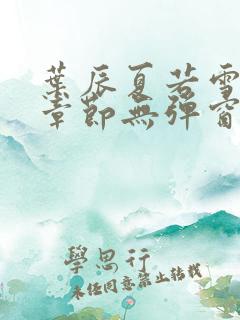 葉辰夏若雪
章節無彈窗
學思行
未经同意禁止转载